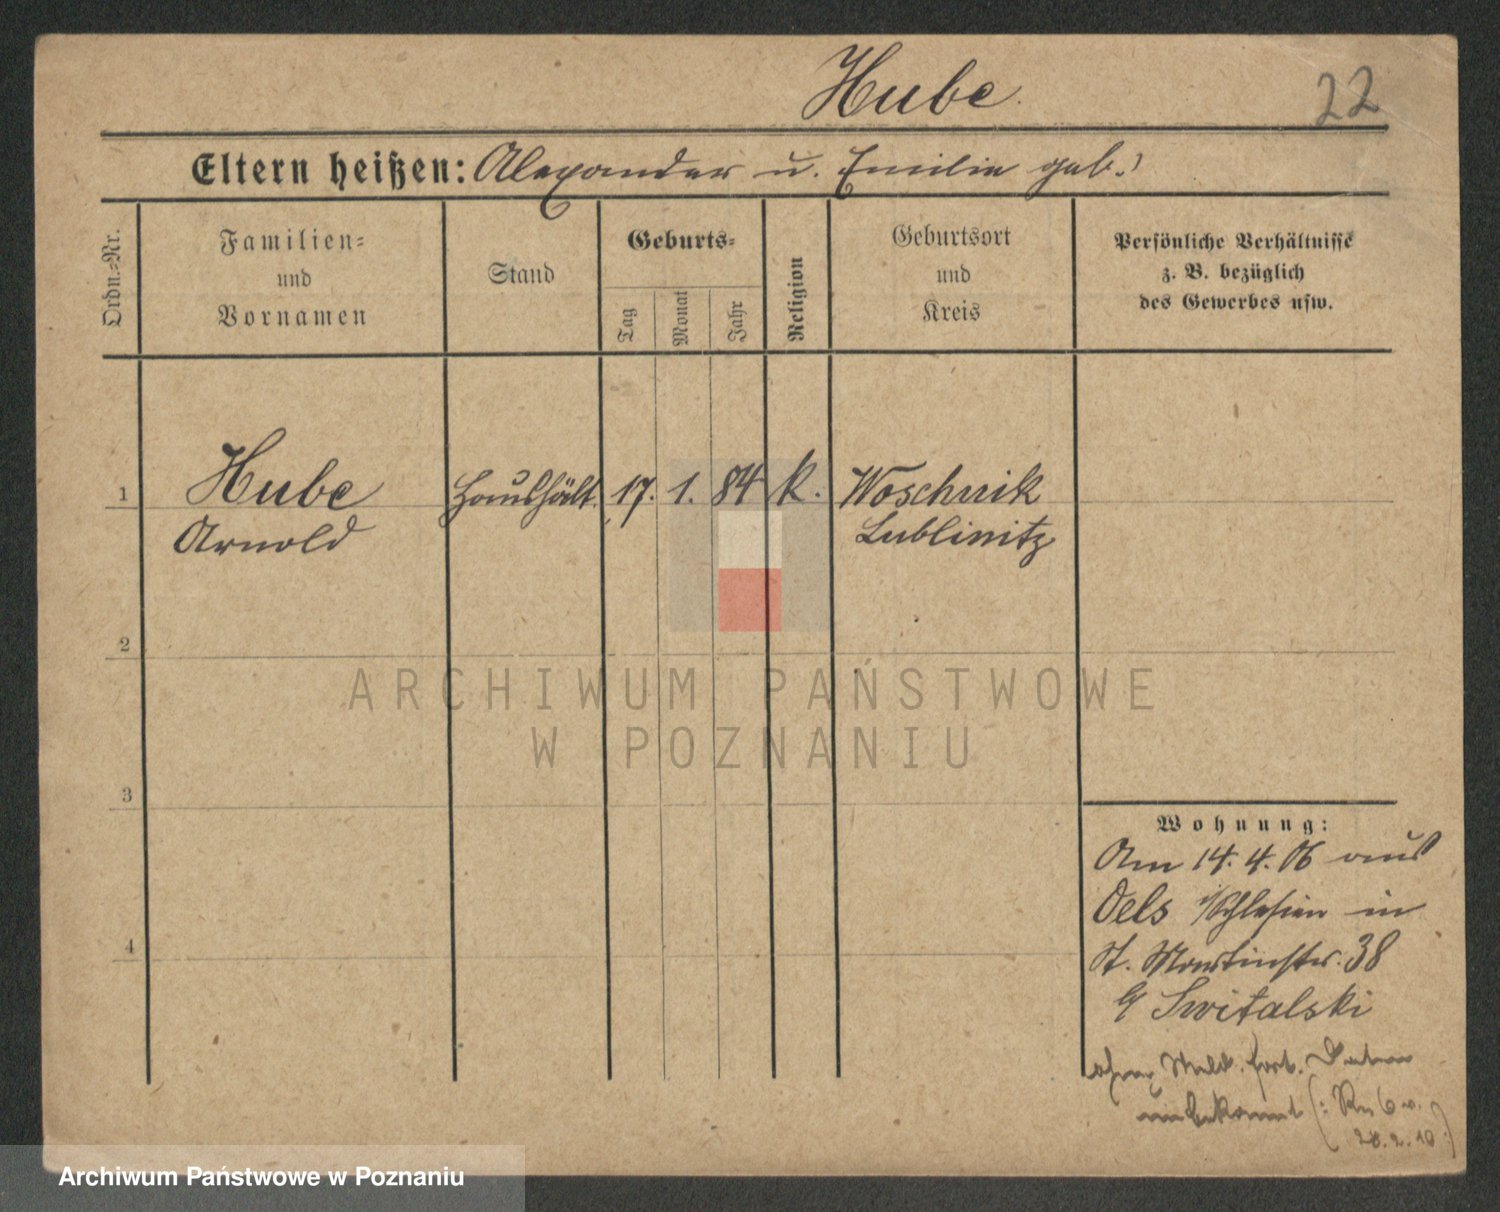 Hube
22
Eltern heißen: Alexander u. Emilie geb. ?
Ordn.=Nr.
Familien=
und
Vornamen
Stand
Geburts=
Tag
Monat
Jahr
Religion
Geburtsort
und
Kreis
Persönliche Verhältnisse
z. B. bezüglich
des Gewerbes usw.
1 Hube Haushält. 17. 1. 84 k. Woschnik
Arnold Lublinitz
2
3
4
Wohnung:
Am 14. 4. 06 aus
Oels i/Schlesien in
St. Martinstr. 38
Switalski
ohne Meld. fort. Datum
unbekannt
28.2.10
ARCHIWUM PAŃSTWOWE
W POZNANIU
Archiwum Państwowe w Poznaniu